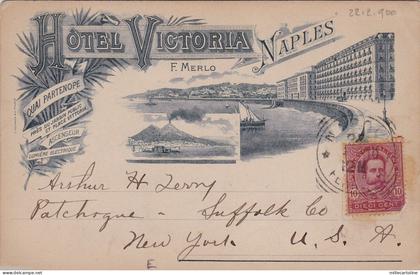 22.2.900
HÔTEL VICTORIA
NAPLES
F. MERLO
QUAI PARTENOPE
PRÈS DU JARDIN PUBLIC
ET PLACE VITTORIA
ASCENSEUR
LUMIÈRE ELECTRIQUE
10 10
DIECI CENT
Arthur H Terry
Patchogue - Suffolk Co
New York U. S. A.
E